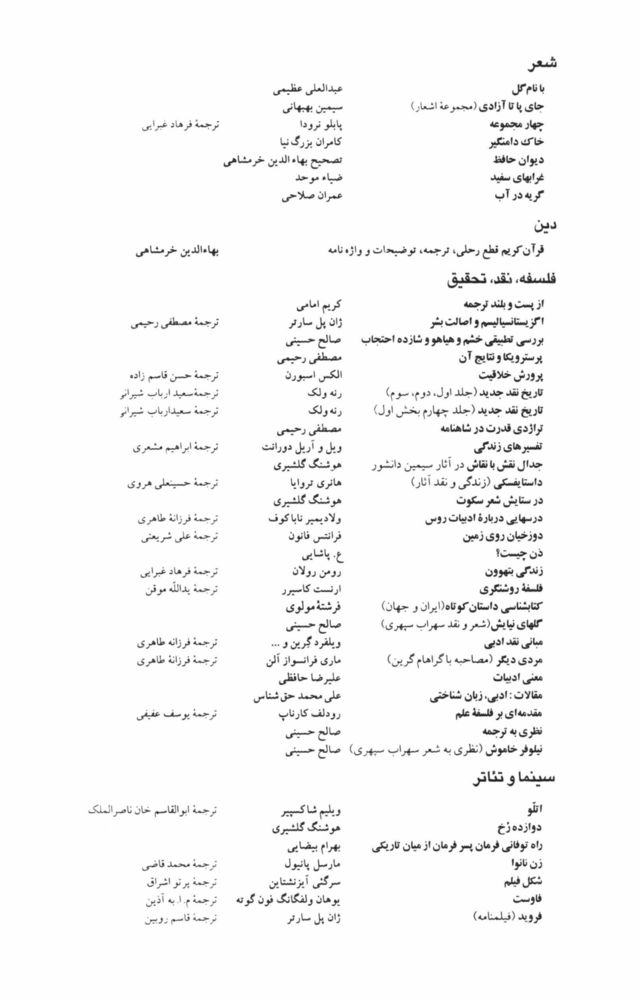 شعر
با نام گل عبدالعلی عظیمی
جای پا تا آزادی (مجموعهٔ اشعار) سیمین بهبهانی
چهار مجموعه پابلو نرودا ترجمهٔ فرهاد غبرایی
خاک دامنگیر کامران بزرگ نیا
دیوان حافظ تصحیح بهاء الدین خرمشاهی
غرابهای سفید ضیاء موحد
گریه در آب عمران صلاحی
دین
قرآن کریم قطع رحلی، ترجمه، توضیحات و واژه نامه بهاءالدین خرمشاهی
فلسفه، نقد، تحقیق
از پست و بلند ترجمه کریم امامی
اگزیستانسیالیسم و اصالت بشر ژان پل سارتر ترجمهٔ مصطفی رحیمی
بررسی تطبیقی خشم و هیاهو و شازده احتجاب صالح حسینی
پرسترویکا و نتایج آن مصطفی رحیمی
پرورش خلاقیت الکس اسبورن ترجمهٔ حسن قاسم زاده
تاریخ نقد جدید (جلد اول، دوم، سوم) رنه ولک ترجمهٔ سعید ارباب شیرانی
تاریخ نقد جدید (جلد چهارم بخش اول) رنه ولک ترجمهٔ سعید ارباب شیرانی
تراژدی قدرت در شاهنامه مصطفی رحیمی
تفسیرهای زندگی ویل و آریل دورانت ترجمهٔ ابراهیم مشعری
جدال نقش با نقاش در آثار سیمین دانشور هوشنگ گلشیری
داستایفسکی (زندگی و نقد آثار) هانری تروایا ترجمهٔ حسینعلی هروی
در ستایش شعر سکوت هوشنگ گلشیری
درسهایی دربارهٔ ادبیات روس ولادیمیر ناباکوف ترجمهٔ فرزانهٔ طاهری
دوزخیان روی زمین فرانتس فانون ترجمهٔ علی شریعتی
ذن چیست؟ ع. پاشایی
زندگی بتهوون رومن رولان ترجمهٔ فرهاد غبرایی
فلسفهٔ روشنگری ارنست کاسیرر ترجمهٔ یدالله موقن
کتابشناسی داستان کوتاه (ایران و جهان) فرشتهٔ مولوی
گلهای نیایش (شعر و نقد سهراب سپهری) صالح حسینی
مبانی نقد ادبی ویلفرد گرین و ... ترجمهٔ فرزانه طاهری
مردی دیگر (مصاحبه با گراهام گرین) ماری فرانسواز آلن ترجمهٔ فرزانهٔ طاهری
معنی ادبیات علیرضا حافظی
مقالات : ادبی، زبان شناختی علی محمد حق شناس
مقدمه‌ای بر فلسفهٔ علم رودلف کارناپ ترجمهٔ یوسف عفیفی
نظری به ترجمه صالح حسینی
نیلوفر خاموش (نظری به شعر سهراب سپهری) صالح حسینی
سینما و تئاتر
اتلّو ویلیم شاکسپیر ترجمهٔ ابوالقاسم خان ناصرالملک
دوازده رُخ هوشنگ گلشیری
راه توفانی فرمان پسر فرمان از میان تاریکی بهرام بیضایی
زن نانوا مارسل پانیول ترجمهٔ محمد قاضی
شکل فیلم سرگئی آیزنشتاین ترجمهٔ پرتو اشراق
فاوست یوهان ولفگانگ فون گوته ترجمهٔ م.ا. به آذین
فروید (فیلمنامه) ژان پل سارتر ترجمهٔ قاسم روبین